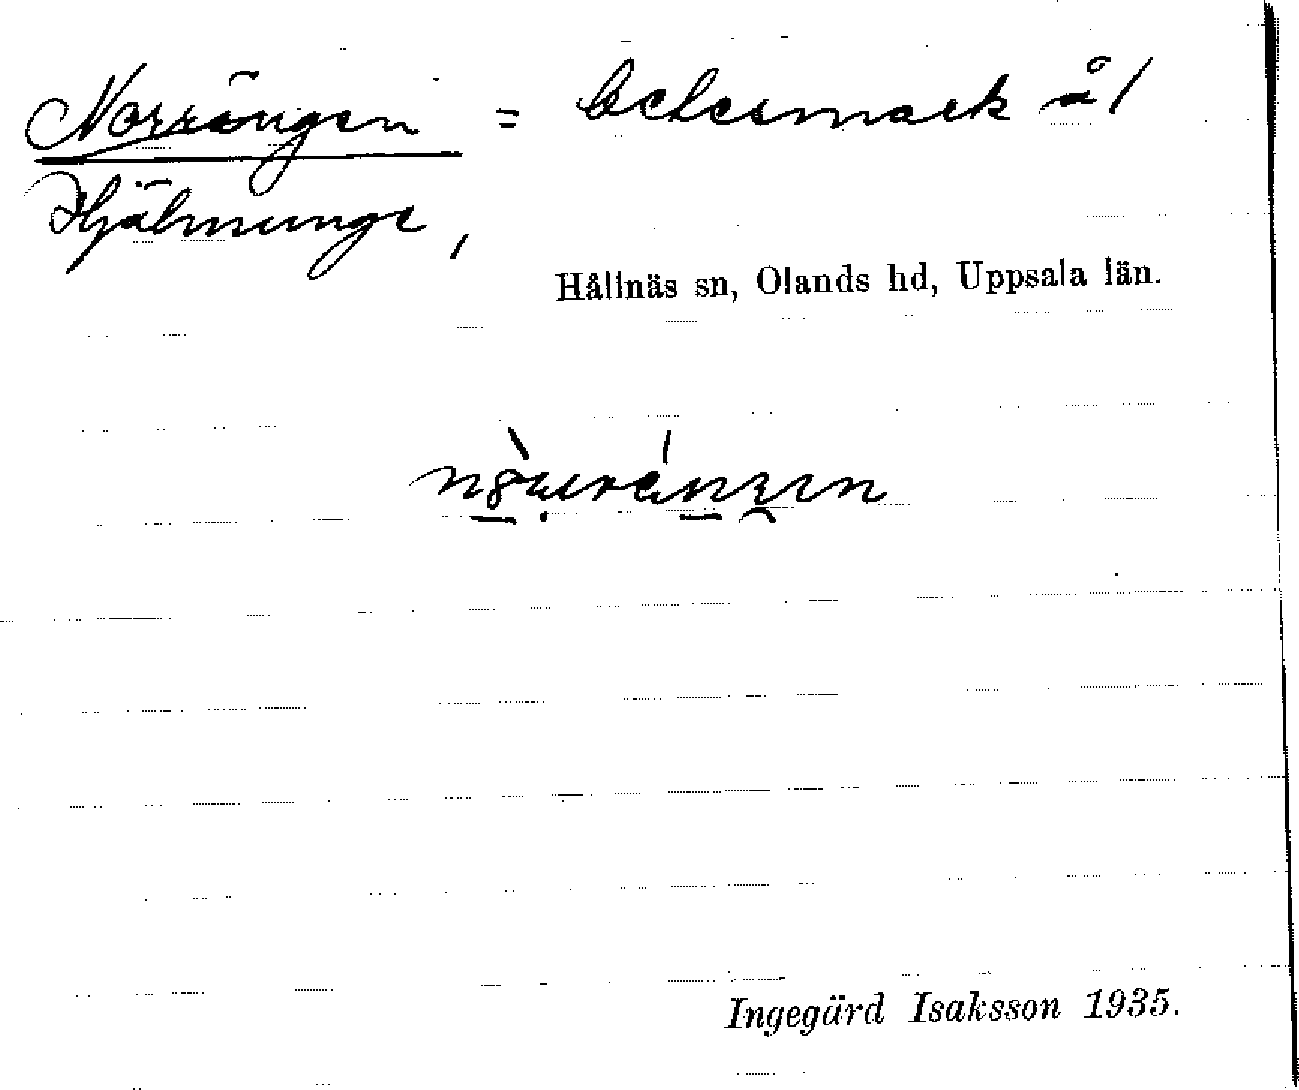 Norrängen = betesmark å/
Hjälmunge,
Hållnäs sn, Olands hd, Uppsala län.
Ingegärd Isaksson 1935.